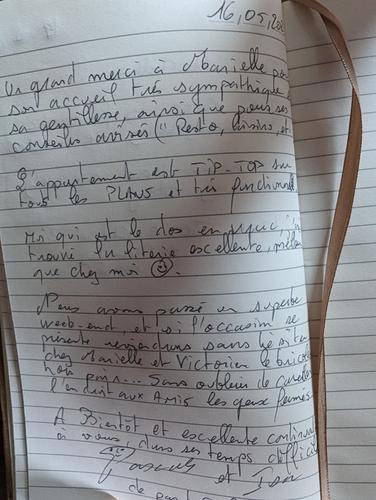 16,05,20
Un grand merci à Marielle pour
son accueil très sympathique,
sa gentillesse, ainsi que pour ses
conseils avisés ("Resto, loisirs, et
L'appartement est TIP-TOP sur
tous les PLANS et très fonctionnel
Moi qui est le dos en
trouvé la literie excellente,
que chez moi ☺.
Nous avons passé un superbe
week-end, et si l'occasion se
présente reviendrons sans hésiter
chez Marielle et Victorien le
hors pair... Sans oublier de
l'endroit aux Amis les yeux fermés
A Bientôt et excellente
à vous, dans ses temps
Pascal et
de